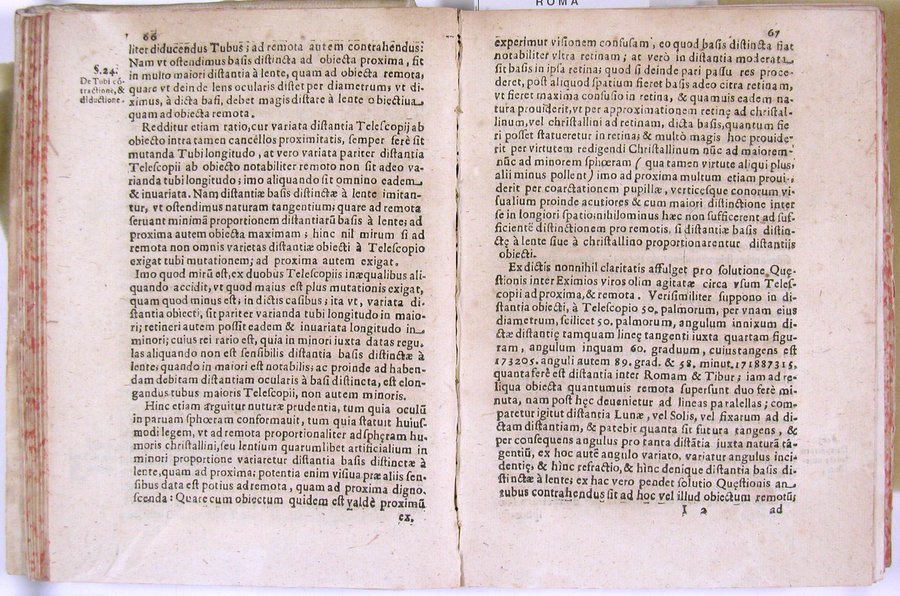 ROMA
66
liter diducendus Tubus; ad remota autem contrahendus:
Nam vt ostendimus basis distincta ad obiecta proxima, fit
in multo maiori distantia à lente, quam ad obiecta remota,
quare vt deinde lens ocularis distet per diametrum, vt di-
ximus, à dicta basi, debet magis distare à lente obiectiua
quam ad obiecta remota.
S.24.
De Tubi cō-
tractione, &
diductione.
Redditur etiam ratio, cur variata distantia Telescopij ab
obiecto intra tamen cancéllos proximitatis, semper ferè sit
mutanda Tubi longitudo, at vero variata pariter distantia
Telescopii ab obiecto notabiliter remoto non sit adeo va-
rianda tubi longitudo; imo aliquando sit omnino eadem
& inuariata. Nam distantiæ basis distinctæ à lente imitan-
tur, vt ostendimus naturam tangentium; quare ad remota
seruant minimā proportionem distantiarū basis à lente; ad
proxima autem obiecta maximam; hinc nil mirum si ad
remota non omnis varietas distantiæ obiecti à Telescopio
exigat tubi mutationem; ad proxima autem exigat.
Imo quod mirū est, ex duobus Telescopiis inæqualibus ali-
quando accidit, vt quod maius est plus mutationis exigat,
quam quod minus est, in dictis casibus; ita vt, variata di-
stantia obiecti, sit pariter varianda tubi longitudo in maio-
ri; retineri autem possit eadem & inuariata longitudo in
minori; cuius rei rario est, quia in minori iuxta datas regu-
las aliquando non est sensibilis distantia basis distinctæ à
lente; quando in maiori est notabilis; ac proinde ad haben-
dam debitam distantiam ocularis à basi distincta, est elon-
gandus tubus maioris Telescopii, non autem minoris.
Hinc etiam arguitur nuturæ prudentia, tum quia oculū
in paruam sphœram conformauit, tum quia statuit huius-
modi legem, vt ad remota proportionaliter ad sphęram hu-
moris christallini, seu lentium quarumlibet artificialium in
minori proportione variaretur distantia basis distinctæ à
lente, quam ad proxima; potentia enim visiua præ aliis sen-
sibus data est potius ad remota, quam ad proxima digno-
scenda: Quare cum obiectum quidem est valdè proximū
ex.
67
experimur visionem confusam, eo quod basis distincta fiat
notabiliter vltra retinam; at verò in distantia moderata
sit basis in ipsa retina; quod si deinde pari passu res proce-
deret, post aliquod spatium fieret basis adeo citra retinam,
vt fieret maxima confusio in retina, & quamuis eadem na-
tura prouiderit, vt per approximationem retinę ad christal-
linum, vel christallini ad retinam, dicta basis, quantum fie
ri posset statueretur in retina; & multò magis hoc prouide-
rit per virtutem redigendi Christallinum nūc ad maiorem
nūc ad minorem sphœram (qua tamen virtute aliqui plus,
alii minus pollent) imo ad proxima multum etiam proui-
derit per coarctationem pupillæ, verticesque conorum vi-
sualium proinde acutiores & cum maiori distinctione inter
se in longiori spatio: nihilominus hæc non sufficerent ad suf-
ficientē distinctionem pro remotis, si distantiæ basis distin-
ctę à lente siue à christallino proportionarentur distantiis
obiecti.
Ex dictis nonnihil claritatis affulget pro solutione Quę-
stionis inter Eximios viros olim agitatæ circa vsum Teles-
copii ad proxima, & remota. Verisimiliter suppono in di-
stantia obiecti, à Telescopio 50. palmorum, per vnam eius
diametrum, scilicet 50. palmorum, angulum innixum di-
ctæ distantię tamquam lineę tangenti iuxta quartam figu-
ram, angulum inquam 60. graduum, cuius tangens est
173205. anguli autem 89. grad. & 58. minut. 171887315.
quanta ferè est distantia inter Romam & Tibur; iam ad re-
liqua obiecta quantumuis remota supersunt duo ferè mi-
nuta, nam post hęc deuenietur ad lineas parallelas; com-
paretur igitur distantia Lunæ, vel Solis, vel fixarum ad di-
ctam distantiam, & patebit quanta sit futura tangens, &
per consequens angulus pro tanta distātia iuxta naturā tā-
gentiū, ex hoc autē angulo variato, variatur angulus inci-
dentię, & hinc refractio, & hinc denique distantia basis di-
stinctæ à lente: ex hac vero pendet solutio Quęstionis an
tubus contrahendus sit ad hoc vel illud obiectum remotius
I 2
ad